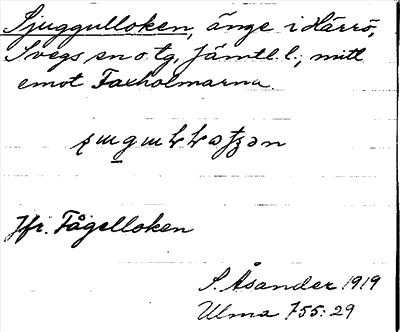 Sjuggulloken, änge i Härrö,
Svegs sn o tg, Jämtl. l., mitt
emot Faxholmarna.
Jfr. Fågelloken
S. Åsander 1919
Ulma 755:29